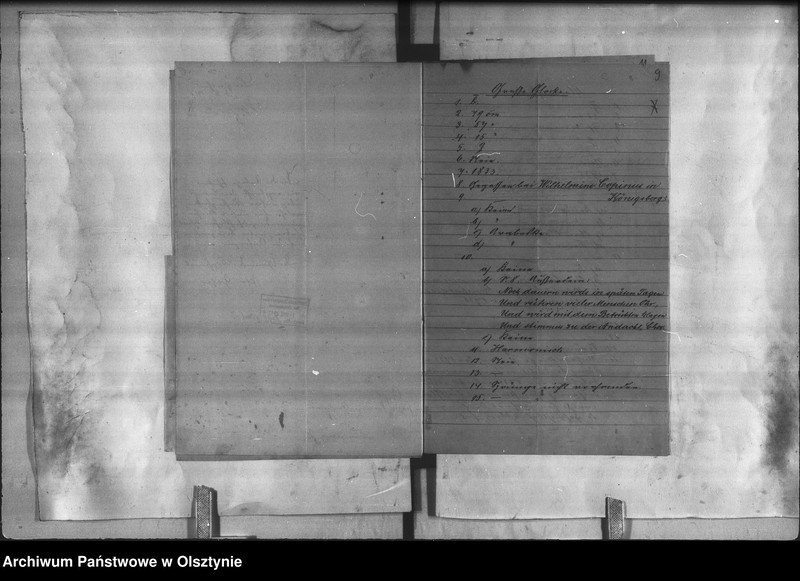 9
Große Glocke.
1. 1.
2. 79 cm
3. 57 "
4. 16 "
5. g
6. Nein
7. 1833
8. Gegossen bei Wilhelmine Copinus in
9. Königsberg.
a) Keine
b) "
c) Arabeske
d) "
10.
a) Keine
b)
Noch dauern wird's in späten Tagen
Und rühren vieler Menschen Ohr,
Und wird mit dem Betrübten klagen
Und stimmen zu der Andacht Chor.
c) Keine
11. Harmonisch
12. Nein
13. —
14. Sprünge nicht vorhanden
15. —
Archiwum Państwowe w Olsztynie